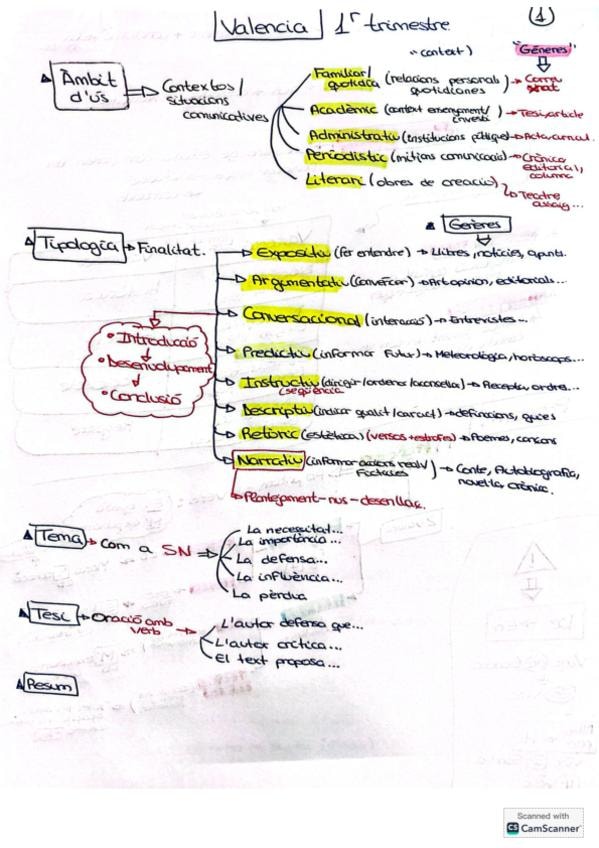 Valencia 1r trimestre
1
"context"
"Gèneres"
Àmbit d'ús
Contextos/
situacions
comunicatives
Familiar/ (relacions personals
quotidica quotidianes)
Acadèmic (context ensenyament/
investi) Tesi, article
Administratiu (institucions
Periodístic (mitjans comunicació) Crònica
editorial,
columna
Literari (obres de creació) Teatre
assaig...
Tipologia Finalitat.
Gèneres
Expositiu (fer entendre) Llibres, notícies, apunts.
Argumentatiu (convèncer) Art opinion, editorials...
Conversacional (interacció) Entrevistes...
• Introducció
• Desenvolupament
• Conclusió
Predictiu (informar futur) Meteorologia, horòscops...
Instructiu (dirigir/ordenar/aconsella) Receptes, ordres...
(seqüència
Descriptiu (indicar qualit/caract) definicions, guies
Retòric (estètica) (versos+estrofes) Poemes, cançons
Narratiu (informar accions reals/
factícies) Conte, Autobiografia,
novel·la, crònic.
Plantejament-nus-desenllaç.
Tema com a SN
La necessitat...
La importància...
La defensa...
La influència...
La pèrdua
Tesi Oració amb
verb
L'autor defensa que...
L'autor critica...
El text proposa...
Resum
Scanned with
CS CamScanner